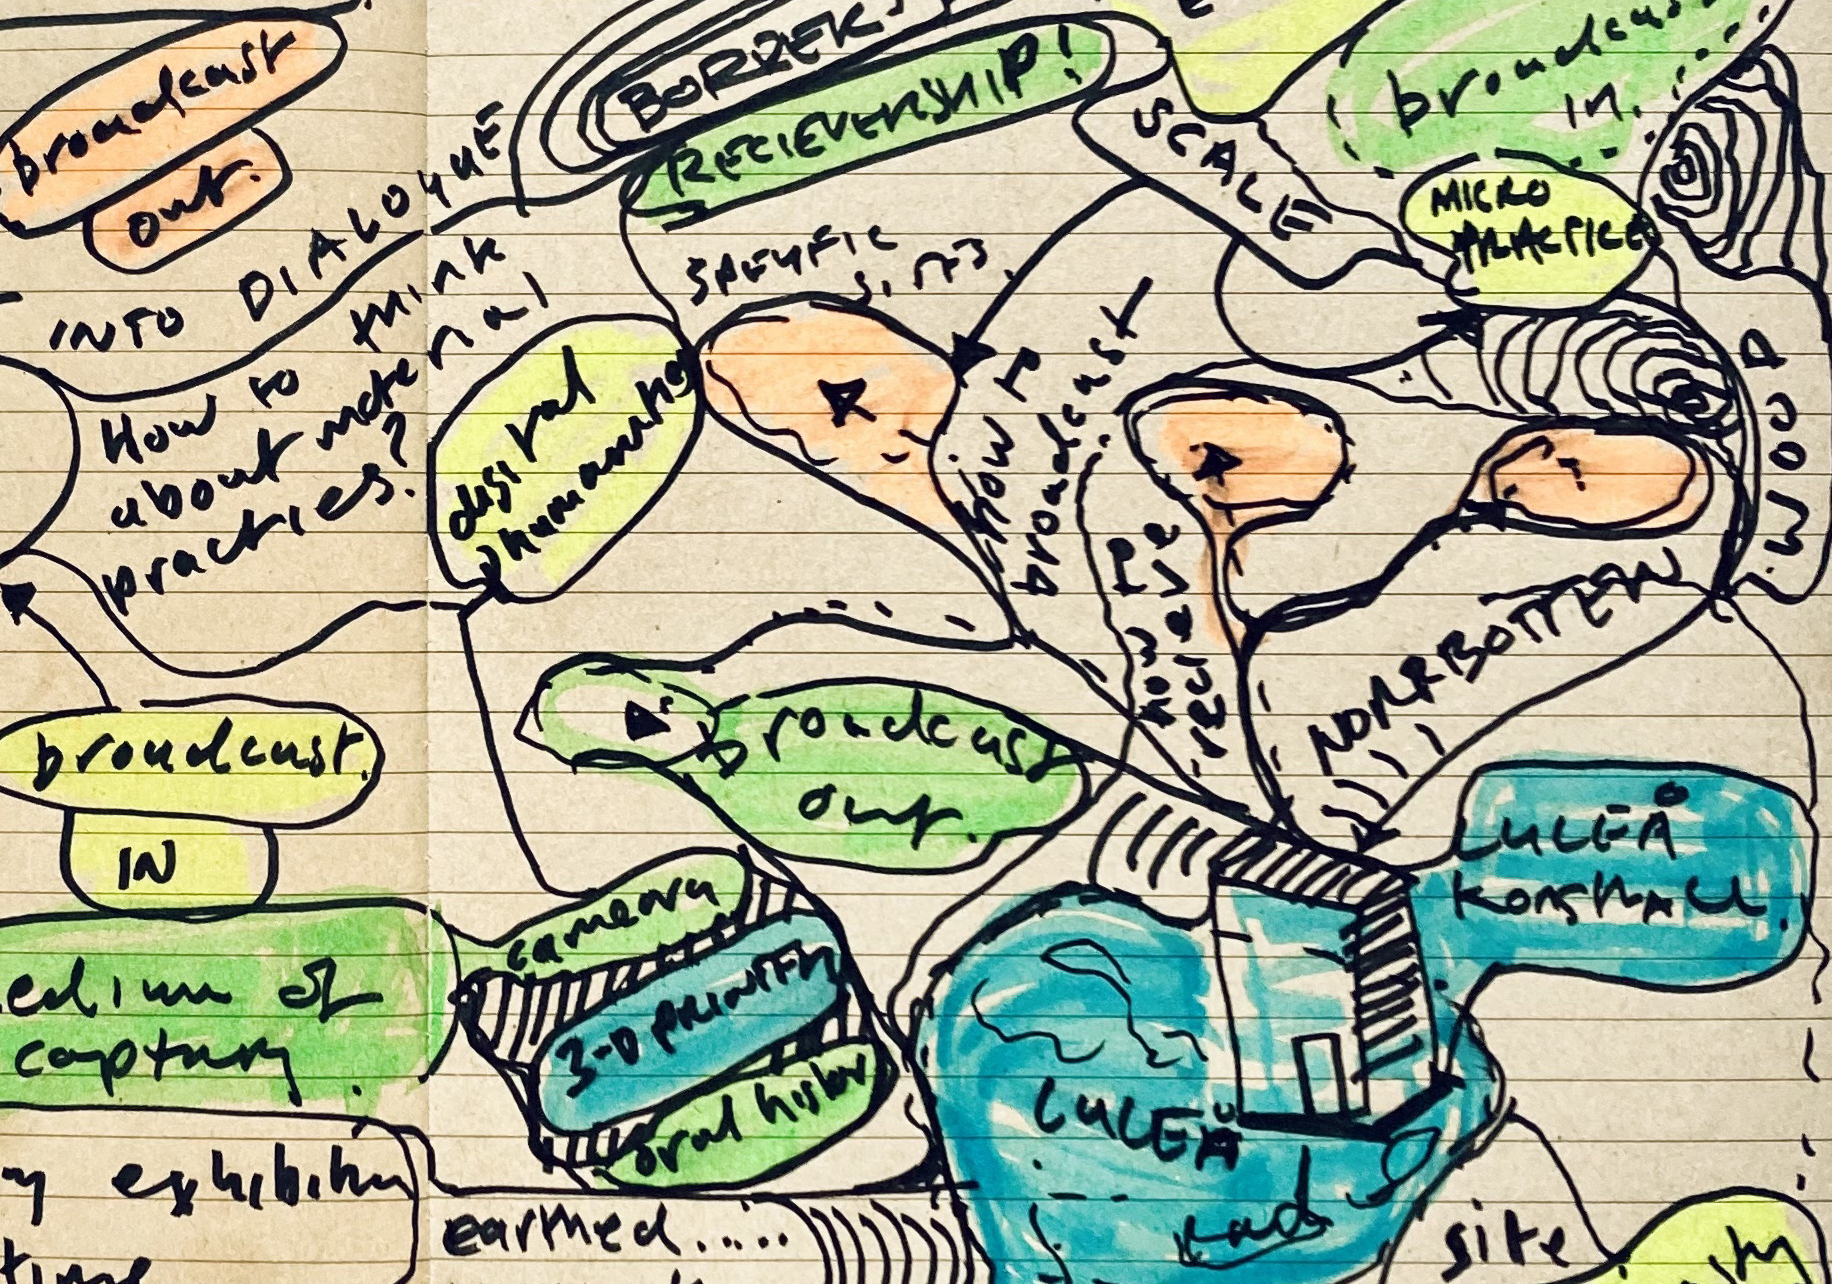 broadcast
out.
INTO DIALOGUE
How to think
about material
practices?
broadcast.
IN
medium of
capturing
exhibition
time
RECIEVERSHIP!
SPECIFIC
SITES.
digital
humanities
SCALE
broadcast
in.
MICRO
PRACTICE
WOOD
HOW TO
broadcast
HOW TO
recieve
NORRBOTTEN
broadcast
out.
camera
3-D PRINTER
oral history
LULEÅ
KONSTHALL.
LULEÅ
earthed.....
site